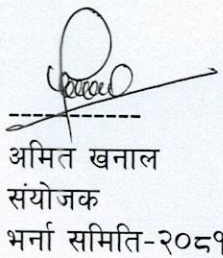 अमित खनाल
संयोजक
भर्ना समिति-२०८१